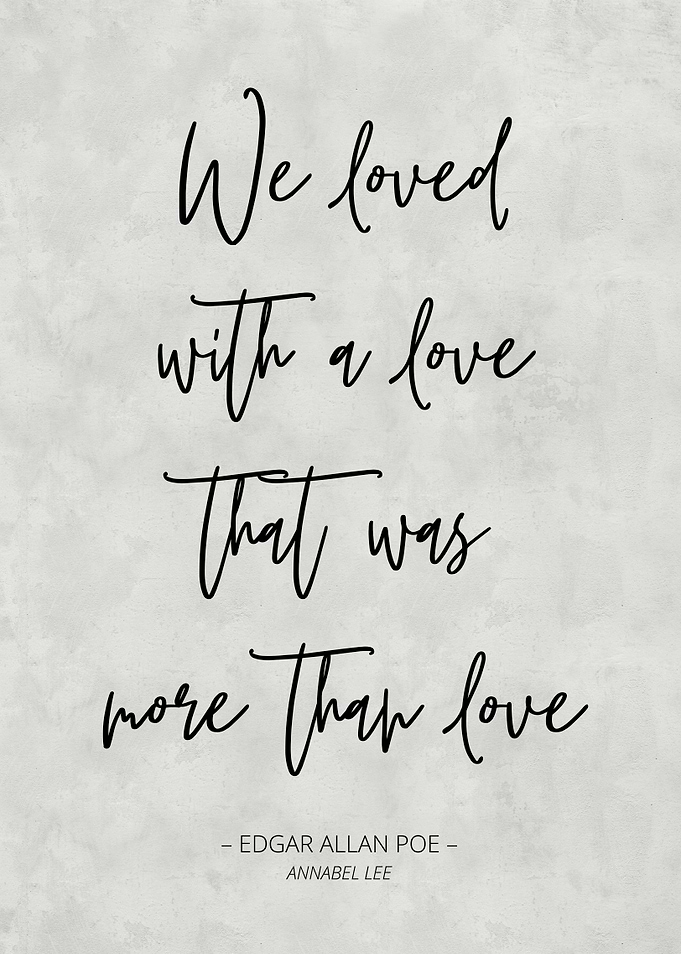 We loved
with a love
that was
more than love
– EDGAR ALLAN POE –
ANNABEL LEE